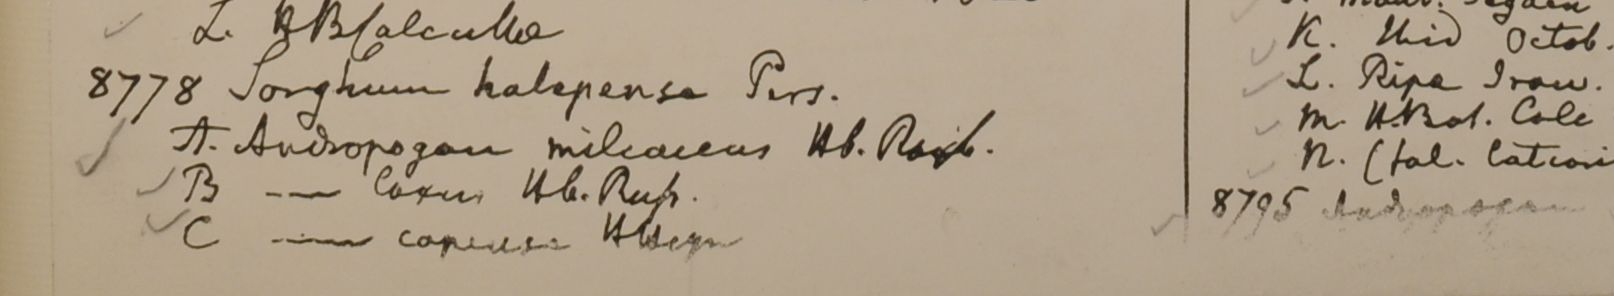 L. HBCalcutta
8778 Sorghum halepense Pers.
A. Andropogon miliaceus Hb. Roxb.
B — laxus Hb. Russ.
C — Hb Heyn
K. Ibid Octob.
L. Ripa Iraw.
M. H.Bot. Calc
N.
8795 Andropogon